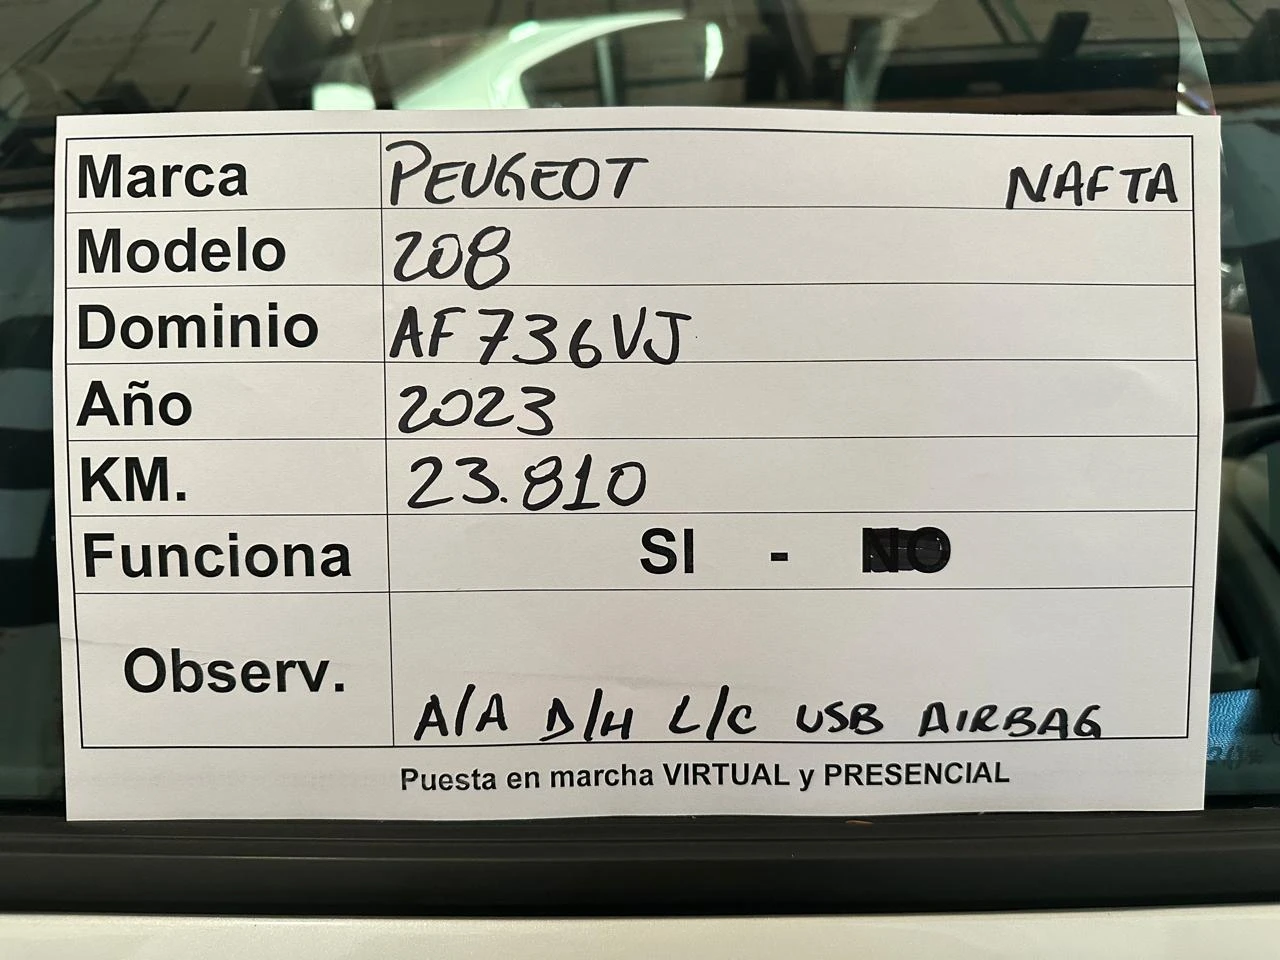 Marca PEUGEOT NAFTA
Modelo 208
Dominio AF736VJ
Año 2023
KM. 23.810
Funciona SI - NO
Observ. A/A D/H L/C USB AIRBAG
Puesta en marcha VIRTUAL y PRESENCIAL